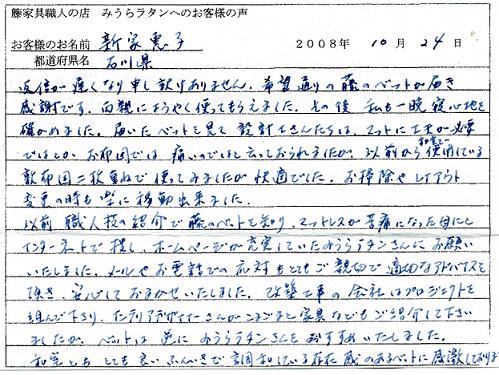 籐家具職人の店 みうらラタンへのお客様の声
お客様のお名前 新家恵子 2008年 10月 24日
都道府県名 石川県
返信が遅くなり申し訳けありません。希望通りの藤のベットが届き
感謝です。両親にようやく使ってもらえました。その後 私も一晩 寝心地を
確かめました。届いたベットを見て 設計士さんたちは、マットに工夫が必要
ではとか お布団では 痛いのではと云っておられましたが、以前から和室で使用している
敷布団二枚重ねで使ってみましたが快適でした。お掃除やレイアウト
変更の時も楽に移動出来ました。
以前 職人技の紹介で藤のベットを知り、マットレスが苦痛になった母にと
インターネットで捜し、ホームページが充実していたみうらラタンさんにお願い
いたしました。メールやお電話での応対もとてもご親切で適切なアドバイスを
頂き、安心しておまかせいたしました。改築工事の会社はプロジェクトを
組んで下さり、インテリアデザイナーさんがこまごまと家具などもご紹介して下さい
ましたが、ベットは 逆に みうらラタンさんをおすすめいたしました。
和室とも とても良いふんいきで調和している存在感のあるベットに感激しております